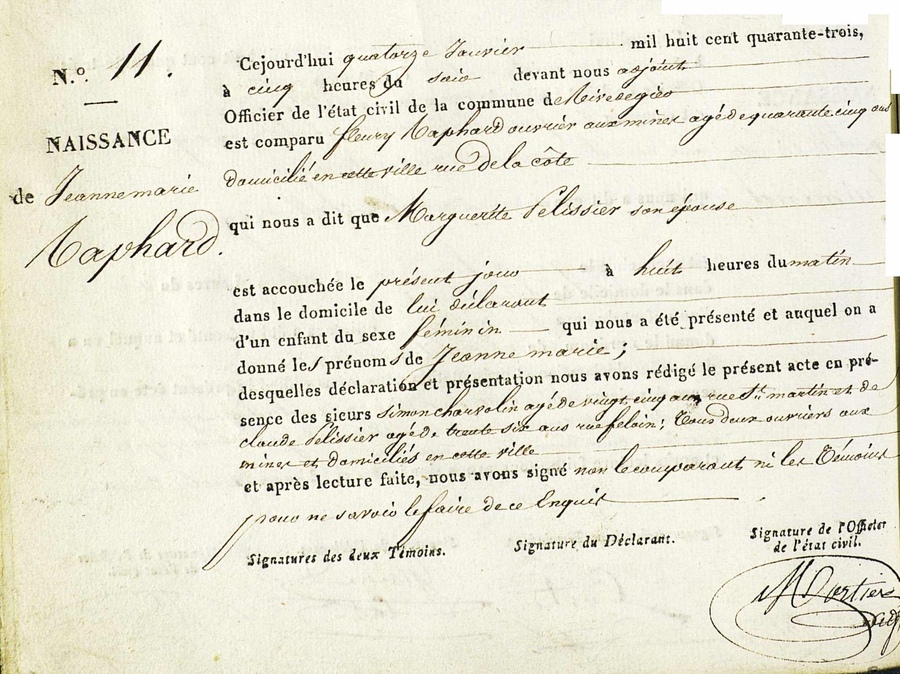 N.º 11.
NAISSANCE
de Jeanne marie
Raphard.
Cejourd'hui quatorze Janvier mil huit cent quarante-trois,
à cinq heures du soir devant nous adjoint
Officier de l'état civil de la commune de Rivedegier
est comparu fleury Raphard ouvrier aux mines agé de quarante cinq ans
domicilié en cette ville rue de la côte
qui nous a dit que Marguerite Pelissier son épouse
est accouchée le présent jour à huit heures du matin
dans le domicile de lui déclarant
d'un enfant du sexe féminin qui nous a été présenté et auquel on a
donné les prénoms de Jeanne marie ;
desquelles déclaration et présentation nous avons rédigé le présent acte en pré-
sence des sieurs simon charvolin agé de vingt cinq ans rue St. martin et de
claude Pelissier agé de trente six ans rue feloin ; Tous deux ouvriers aux
mines et domiciliés en cette ville
et après lecture faite, nous avons signé non le comparant ni les Témoins
pour ne savoir le faire de ce Enquis
Signatures des deux Témoins.
Signature du Déclarant.
Signature de l'Officier
de l'état civil.
Mortier
adj